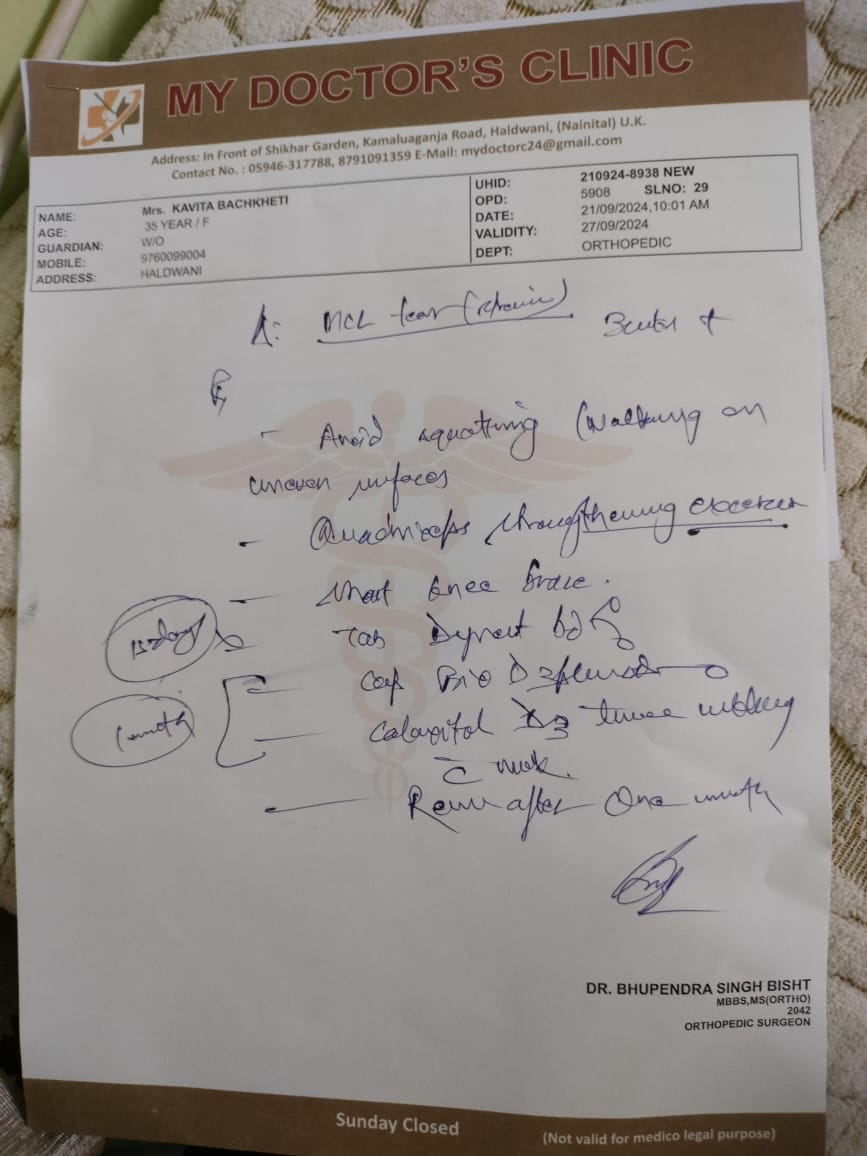 MY DOCTOR'S CLINIC
Address: In Front of Shikhar Garden, Kamaluaganja Road, Haldwani, (Nainital) U.K.
Contact No. : 05946-317788, 8791091359 E-Mail: mydoctorc24@gmail.com
NAME: Mrs. KAVITA BACHKHETI
AGE: 35 YEAR / F
GUARDIAN: W/O
MOBILE: 9760099004
ADDRESS: HALDWANI
UHID: 210924-8938 NEW
OPD: 5908 SLNO: 29
DATE: 21/09/2024,10:01 AM
VALIDITY: 27/09/2024
DEPT: ORTHOPEDIC
MCL tear
- Avoid squatting (Walking on
uneven surfaces
- Quadriceps strengthening
- Short knee brace.
15 days Tab
- Cap
1 month -
c milk.
- Review after One month
DR. BHUPENDRA SINGH BISHT
MBBS,MS(ORTHO)
2042
ORTHOPEDIC SURGEON
Sunday Closed
(Not valid for medico legal purpose)